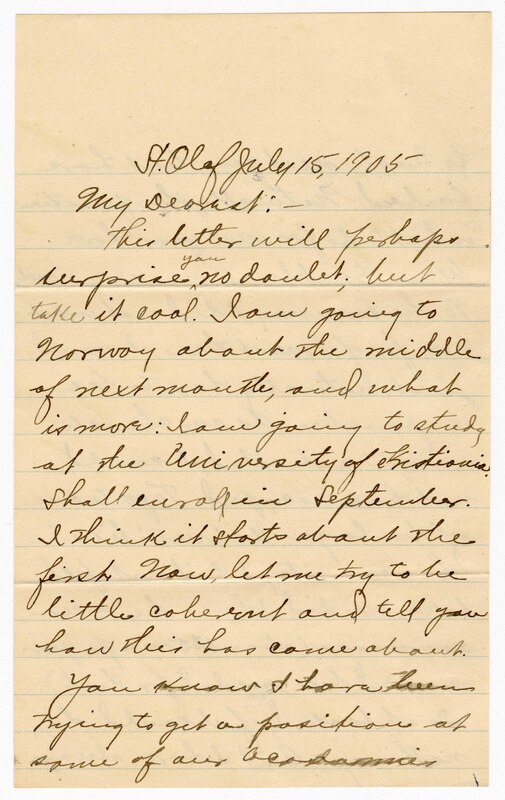 St. Olaf July 15, 1905
My Dearest: —
This letter will perhaps
surprise you no doubt, but
take it cool. I am going to
Norway about the middle
of next month, and what
is more: I am going to study
at the University of Kristiania.
Shall enroll in September.
I think it starts about the
first. Now, let me try to be
little coherent and tell you
how this has come about.
You know I have been
trying to get a position at
some of our Academies